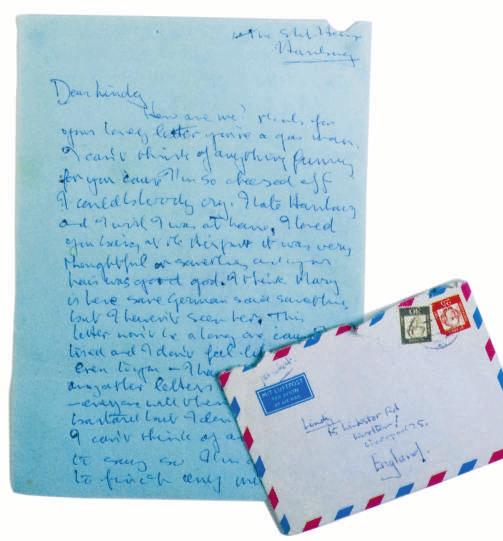 Hamburg
Dear Lindy
How are we? thanks for
your lovely letter you're a gas man.
I can't think of anything funny
for you cause I'm so cheesed off
I could bloody cry. I hate Hamburg
and I wish I was at home, I loved
you being at the Airport it was very
thoughtful or something and your
hair was good god. I think Mary
is here some German said something
but I haven't seen her. This
letter won't be a long one cause I
tired and I don't feel
even to you – I
any other letters
– everyone will
bastard but I don
I can't think of a
to say so I'm
to finish only
MIT LUFTPOST
PAR AVION
BY AIR MAIL
30
25
Lindy
Liverpool 25.
England.